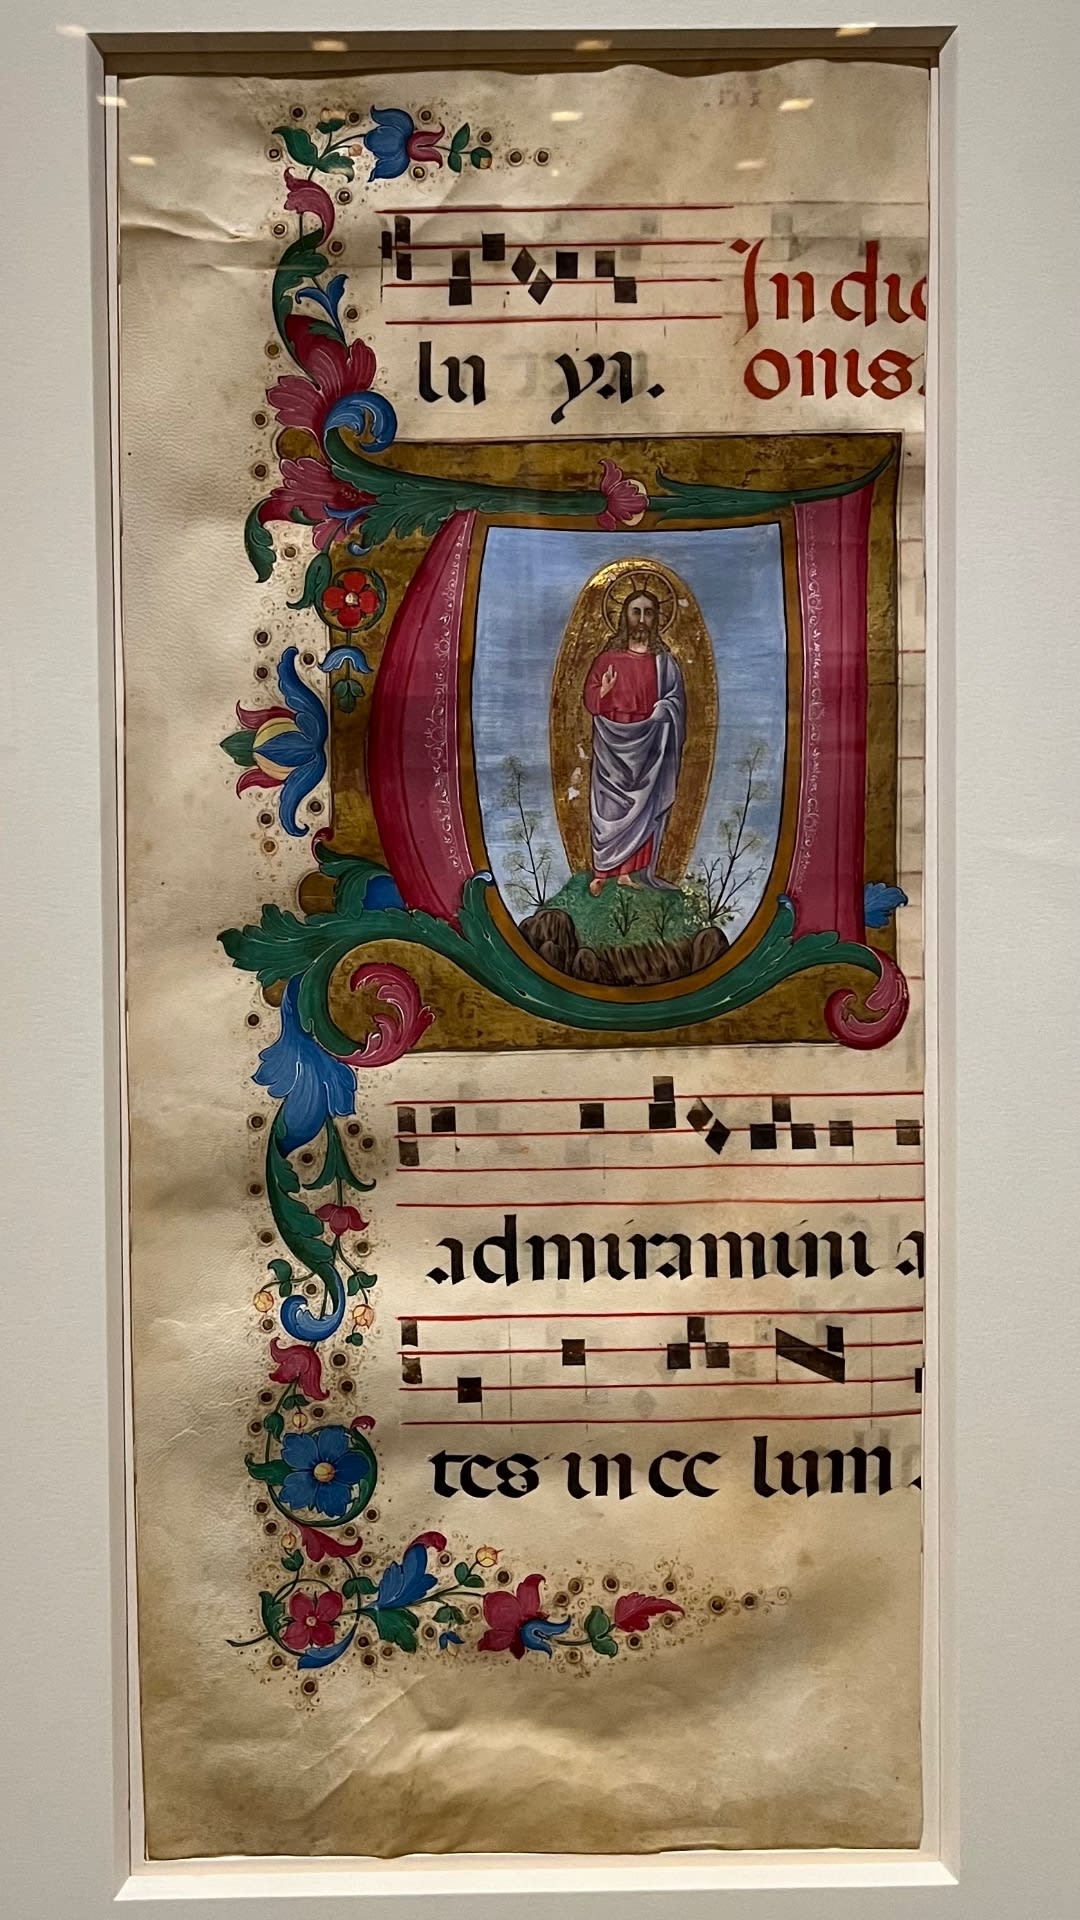 In die
lu ya. onis.
U
admiramini a
tes in ce lum